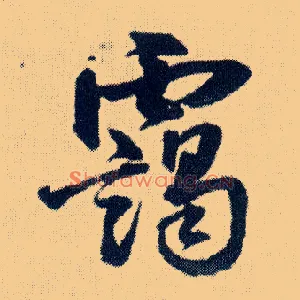 靄
Shufawang.cn